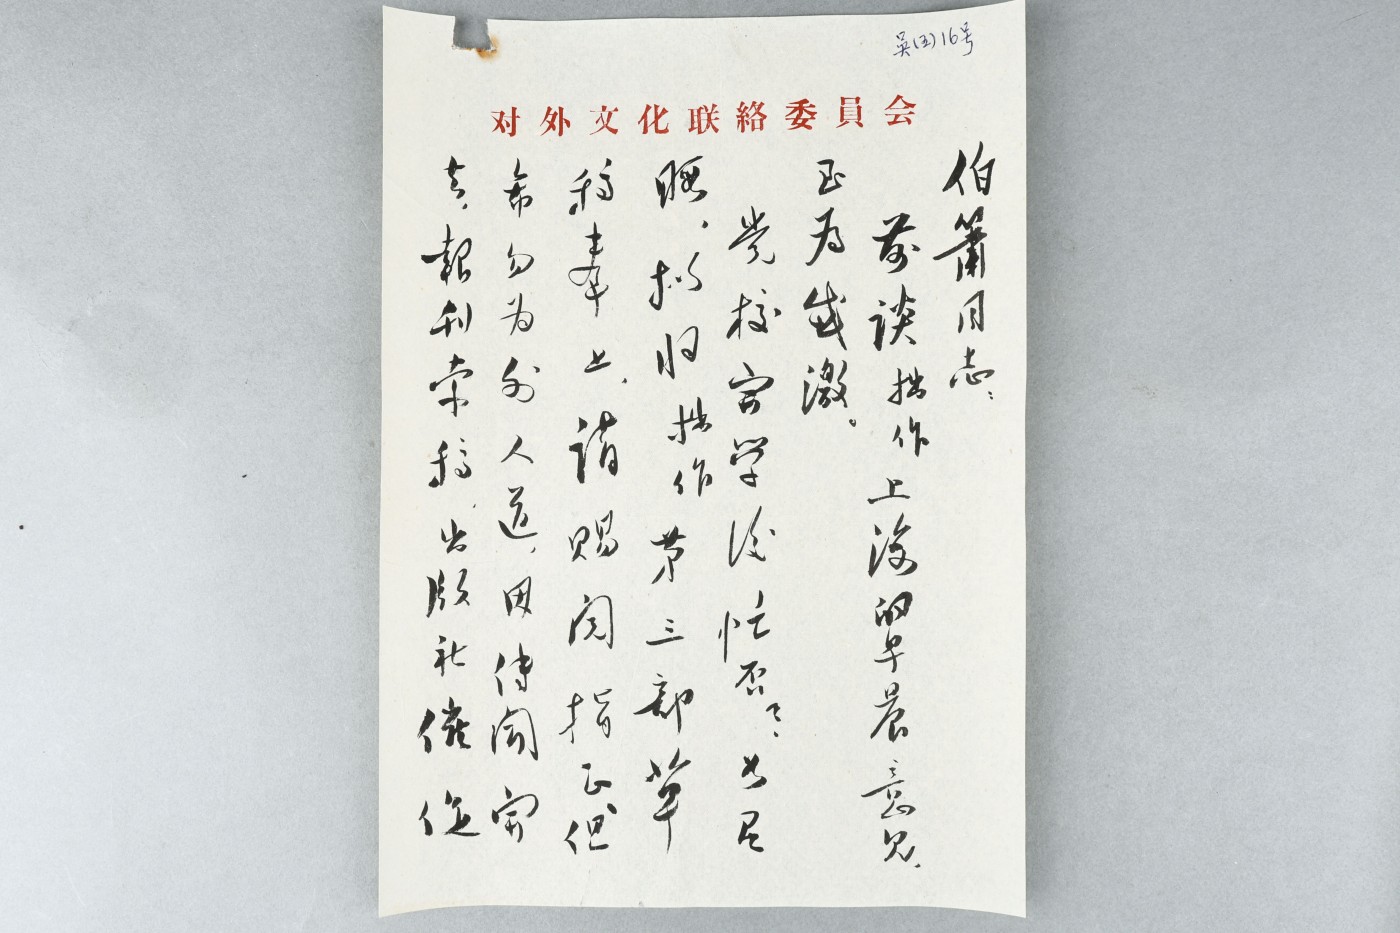 吴(五)16号
对外文化联絡委員会
伯箫同志：
前谈拙作上海的早晨意见，
至为感激。
党校官学后忙否？；如有
暇，拟将拙作第三部草
稿奉上，请赐阅指正但
希勿为外人道，因传闻开
去，報刊索稿，出版社催促